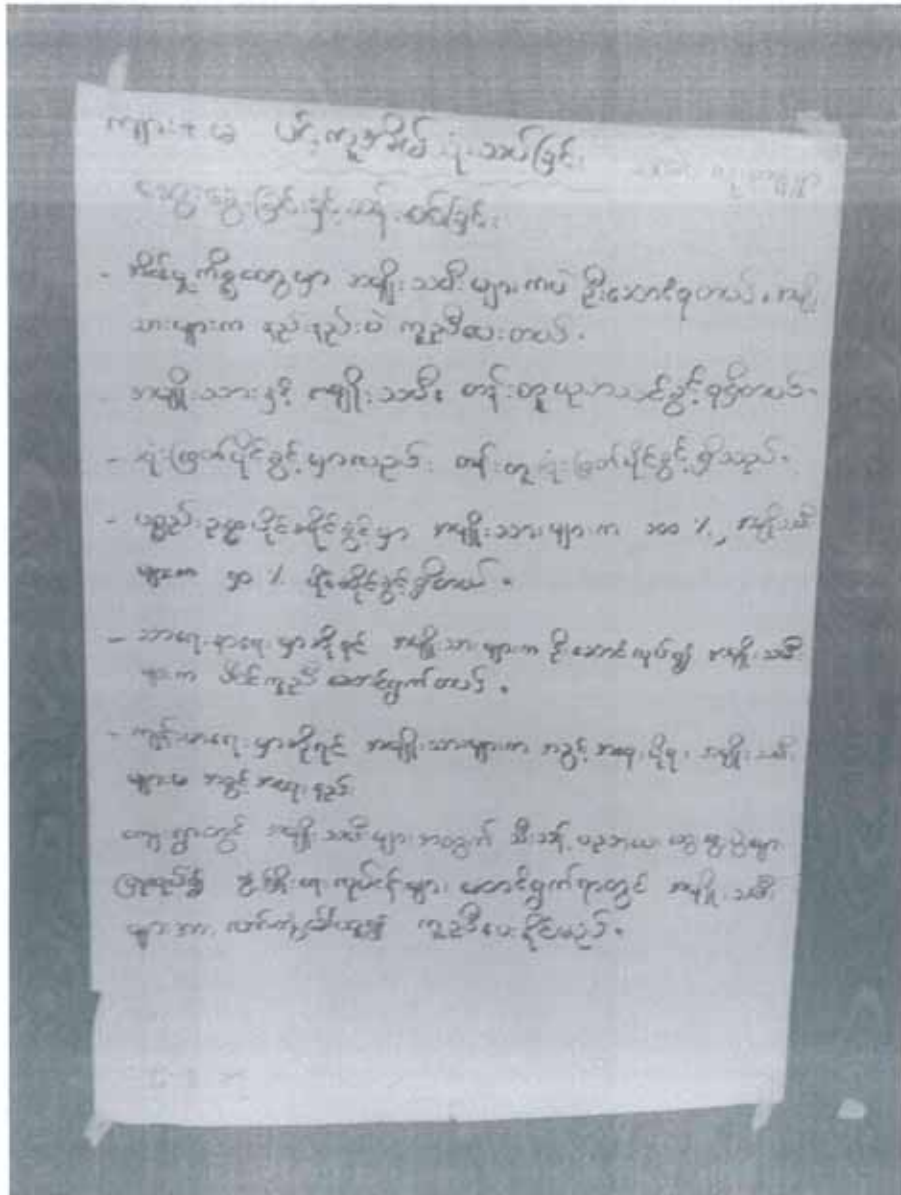 ကျား + မ ပင့်ကူအိမ် သုံးသပ်ခြင်း
ဆွေးနွေးခြင်းနှင့် ဆန်းစစ်ခြင်း
- အိမ်မှုကိစ္စတွေမှာ အမျိုးသမီးများကပဲ ဦးဆောင်ရတယ်၊ အမျိုး
သားများက နည်းနည်းပဲ ကူညီပေးတယ်။
- အမျိုးသားနှင့် အမျိုးသမီး တန်းတူပညာသင်ခွင့်ရှိတယ်။
- ဆုံးဖြတ်ပိုင်ခွင့်မှာလည်း တန်းတူဆုံးဖြတ်ပိုင်ခွင့်ရှိသည်။
- ပစ္စည်းဥစ္စာပိုင်ဆိုင်ခွင့်မှာ အမျိုးသားများက ၁၀၀ %, အမျိုးသမီး
များက ၅၀ % ပိုင်ဆိုင်ခွင့်ရှိတယ်။
- သာရေးနာရေးမှာဆိုရင် အမျိုးသားများက ဦးဆောင်လုပ်၍ အမျိုးသမီး
များက ဝိုင်းကူညီဆောင်ရွက်တယ်။
- ကျန်းမာရေးမှာဆိုရင် အမျိုးသားများက အခွင့်အရေးပိုရ၊ အမျိုးသမီး
များမှ အခွင့်အရေးနည်း
ကျေးရွာတွင် အမျိုးသမီးများအတွက် သီးသန့် ပညာပေး ဆွေးနွေးပွဲများ
ပြုလုပ်၍ ဖွံ့ဖြိုးရေးလုပ်ငန်းများ ဆောင်ရွက်ရာတွင် အမျိုးသမီး
များအား လက်တွဲခေါ်ယူ၍ ကူညီပေးနိုင်မည်။